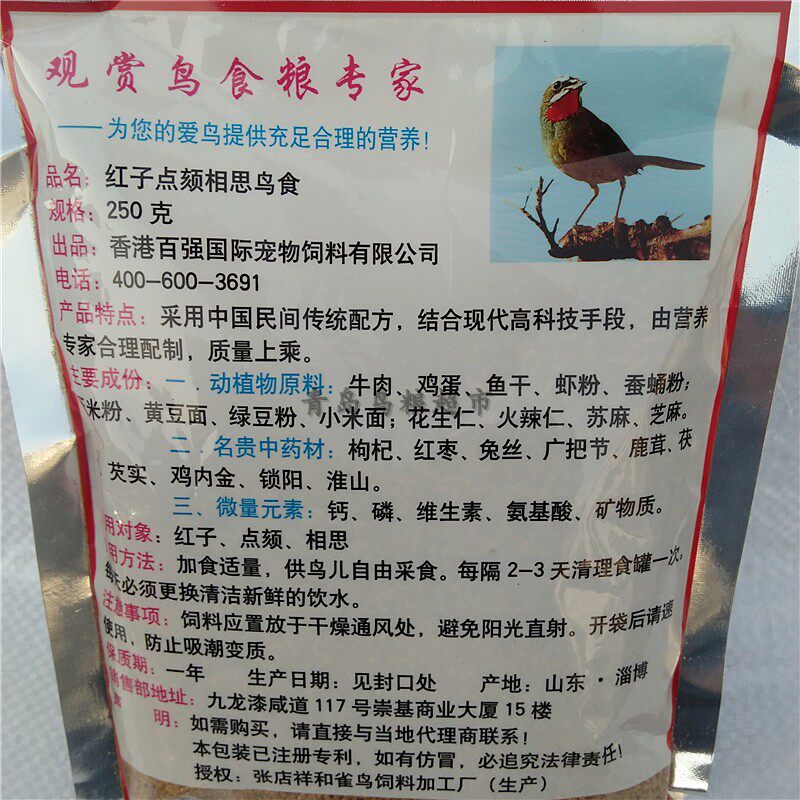 观赏鸟食粮专家
——为您的爱鸟提供充足合理的营养!
品名：红子点颏相思鸟食
规格：250 克
出品：香港百强国际宠物饲料有限公司
电话：400-600-3691
产品特点：采用中国民间传统配方，结合现代高科技手段，由营养
专家合理配制，质量上乘。
主要成份：一．动植物原料：牛肉、鸡蛋、鱼干、虾粉、蚕蛹粉；
米粉、黄豆面、绿豆粉、小米面；花生仁、火辣仁、苏麻、芝麻。
二．名贵中药材：枸杞、红枣、兔丝、广把节、鹿茸、茯
芡实、鸡内金、锁阳、淮山。
三、微量元素：钙、磷、维生素、氨基酸、矿物质。
用对象：红子、点颏、相思
用方法：加食适量，供鸟儿自由采食。每隔 2-3 天清理食罐一次。
每天必须更换清洁新鲜的饮水。
注意事项：饲料应置放于干燥通风处，避免阳光直射。开袋后请速
使用，防止吸潮变质。
保质期：一年 生产日期：见封口处 产地：山东·淄博
销售部地址：九龙漆咸道 117 号崇基商业大厦 15 楼
明：如需购买，请直接与当地代理商联系！
本包装已注册专利，如有仿冒，必追究法律责任！
授权：张店祥和雀鸟饲料加工厂（生产）
青岛鸟粮超市